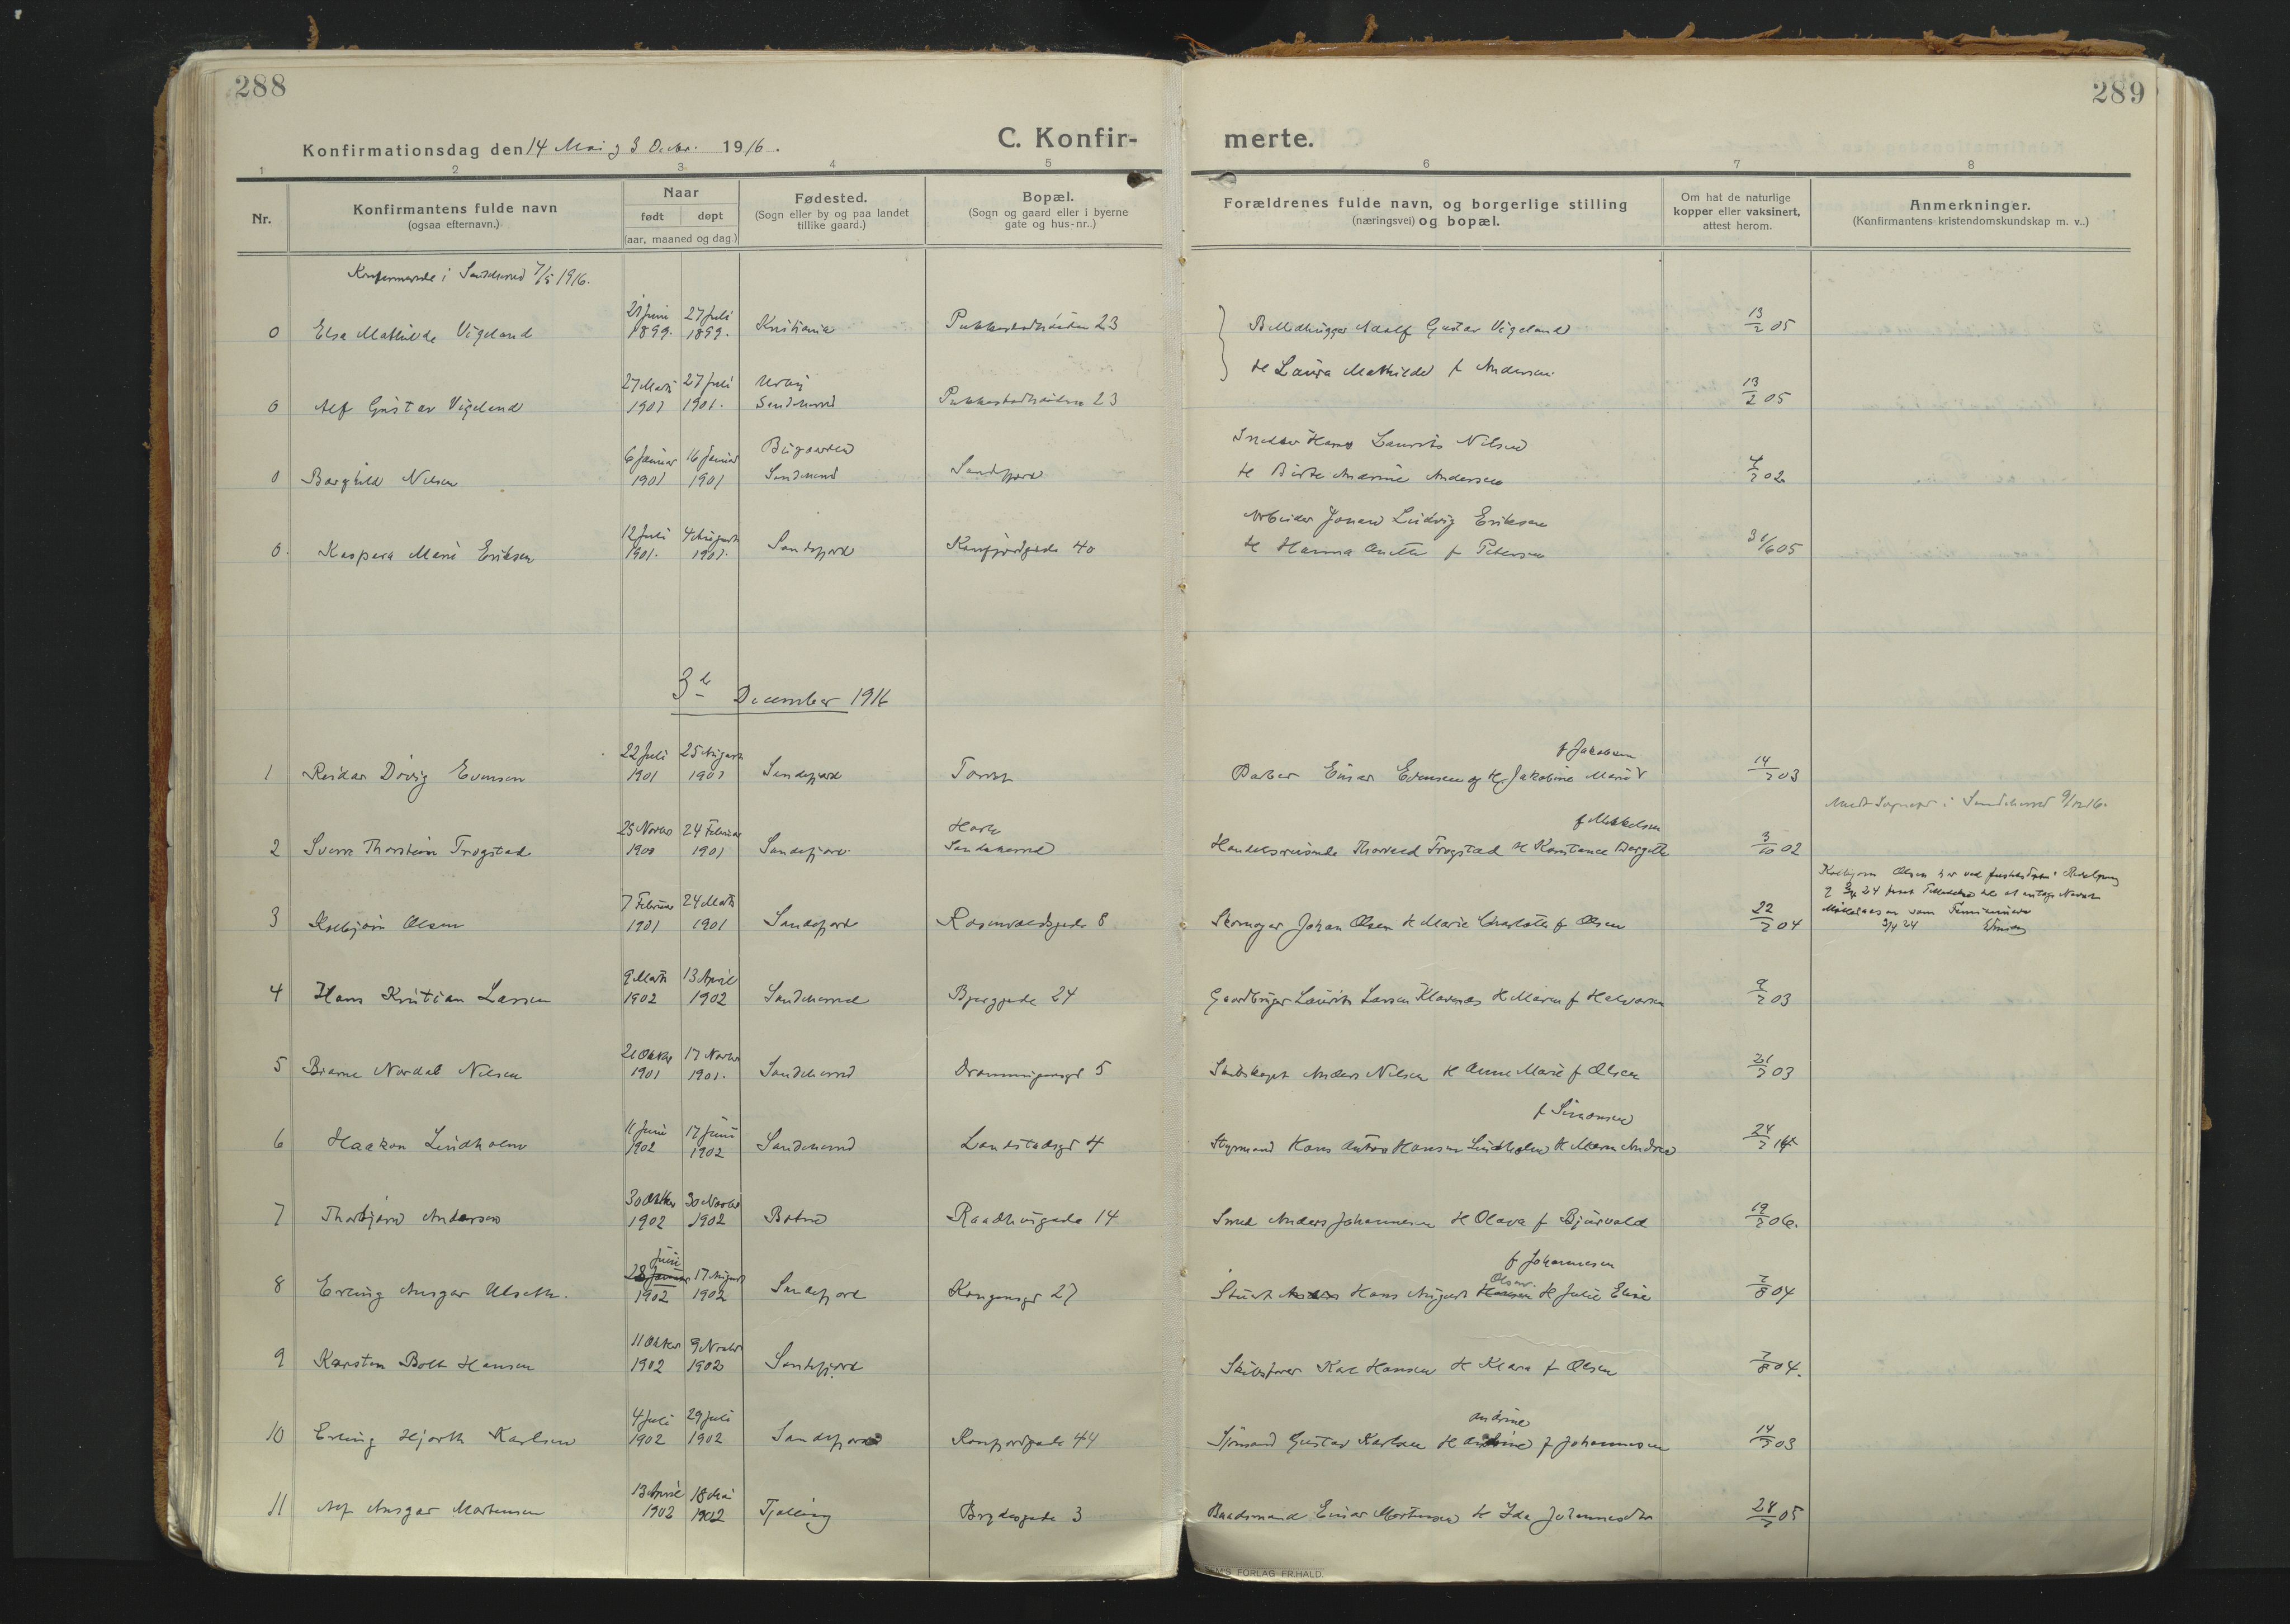 288
289
Konfirmationsdag den 14 Mai og 3 Decbr. 1916.
C. Konfir-
merte.
1 2 3 4 5 6 7 8
Nr.
Konfirmantens fulde navn
(ogsaa efternavn.)
Naar
født døpt
(aar, maaned og dag.)
Fødested.
(Sogn eller by og paa landet
tillike gaard.)
Bopæl.
(Sogn og gaard eller i byerne
gate og hus-nr..)
Forældrenes fulde navn, og borgerlige stilling
(næringsvei) og bopæl.
Om hat de naturlige
kopper eller vaksinert,
attest herom.
Anmerkninger.
(Konfirmantens kristendomskundskap m. v..)
Konfirmerede i Sandeherred 7/5 1916.
0 Elsa Mathilde Vigeland 21 Juni 1899. 27 Juli 1899. Kristiania 23 Billedhugger Adolf Gustav Vigeland 13/2 05
H Laura Mathilde f Andersen
0 Alf Gustav Vigeland 27 Marts 1901 27 Juli 1901. Sandeherred 23 13/2 05
0 Borghild Nilsen 6 Januar 1901 16 Januar 1901 Sandeherred Sandefjord Hans Laurits Nilsen
H Birte Andersen 02
0. Kaspara Marie Eriksen 12 Juli 1901. 4 August 1901. Sandefjord 40 Arbeider Ludvig Eriksen
H Hanna f Petersen 05
3 December 1916
1 Reidar Evensen 22 Juli 1901 25 August 1901 Sandefjord Torvet Barber Einar Evensen og H. Jakobine Marie f Jakobsen 14/2 03
2 Sverre Thorstein Trogstad 25 Novbr 1900 24 Februar 1901 Sandefjord Sandeherred Handelsreisende Thorvald Trogstad H Konstance f Mikkelsen 3/10 02
i Sandeherred 9/12 16.
3 Kolbjørn Olsen 7 Februar 1901 24 Marts 1901 Sandefjord Rosenvoldsgade 8 Skomager Johan Olsen H Marie Charlotte f Olsen 22/2 04
Kolbjørn Olsen har ved
24 til at antage Navnet
som Familienavn
4 Hans Kristian Larsen 9 Marts 1902 13 April 1902 Sandeherred Bjerggade 24 Gaardbruger Laurits Larsen Klavenes H Maren f Halvorsen 03
5 Bjarne Nordal Nilsen 21 Oktbr 1901 17 Novbr 1901. Sandeherred Dronningensgd 5 Skibskapt Anders Nilsen H Anne Marie f Olsen 03
6 Haakon Lindholm 11 Juni 1902 17 Juni 1902 Sandeherred Landstadsgd 4 Styrmand Hans Anton Hansen Lindholm H Maren Andrea f Simonsen 24/2 14
7 Thorbjørn Andersen 30 Oktbr 1902 30 Novbr 1902 Botne Raadhusgade 14 Smed Anders Johannesen H Olava f Bjørvald 19/2 06.
8 Erling Ansgar Ulseth. 28 Juni 1902 17 August 1902 Sandefjord Kongensgd 27 Stuert Hans August Olsen H Julie Elise f Johannesen 7/8 04
9 Karsten Bolt Hansen 11 Oktbr 1902 9 Novbr 1902 Sandefjord Skibsfører Karl Hansen H Klara f Olsen 7/8 04.
10 Erling Hjorth Karlsen 4 Juli 1902 29 Juli 1902 Sandefjord 44 Sjømand Gustav Karlsen H Andrine f Johannesen 14/2 03
11 Alf Ansgar Mortensen 13 April 1902 18 Mai 1902 Tjølling Brydesgade 3 Baadsmand Einar Mortensen H Ida Johannesdtr 05
FORLAG FR.HALD.